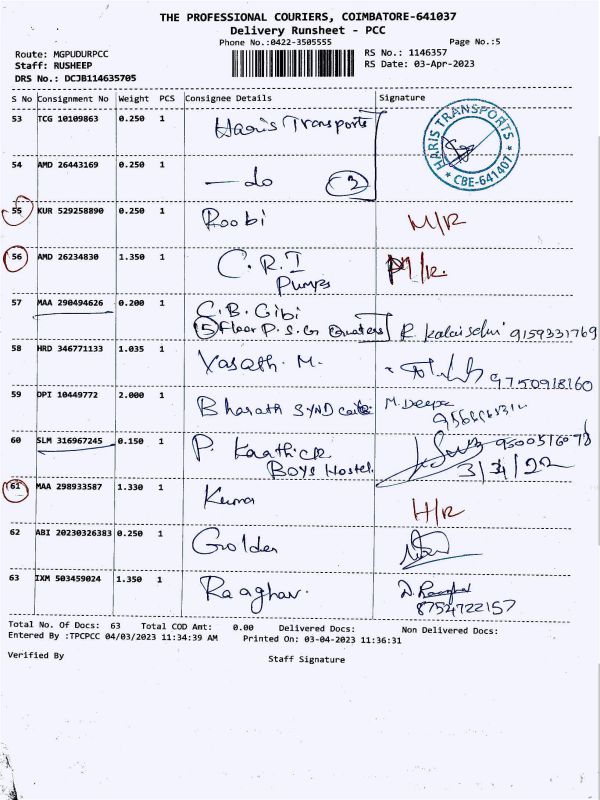 THE PROFESSIONAL COURIERS, COIMBATORE-641037
Delivery Runsheet - PCC
Phone No.:0422-3505555 Page No.:5
Route: MGPUDURPCC RS No.: 1146357
Staff: RUSHEEP RS Date: 03-Apr-2023
DRS No.: DCJB114635705
S No Consignment No Weight PCS Consignee Details Signature
53 TCG 10109863 0.250 1 Haris Transports
HARIS TRANSPORTS
* CBE-641407 *
54 AMD 26443169 0.250 1 — do
55 KUR 529258890 0.250 1 Roobi
56 AMD 26234830 1.350 1 C.R.I
Pumps
57 MAA 290494626 0.200 1 C.B. Gibi
5 Floor P.S.G Quaters R. Kalaiselvi 9159331769
58 HRD 346771133 1.035 1 Vasath. M.
9750918160
59 DPI 10449772 2.000 1 Bharath M. Deepa
60 SLM 316967245 0.150 1 P. Kaathick
Boys Hostel
61 MAA 298933587 1.330 1 Kuma
62 ABI 20230326383 0.250 1 Golden
63 IXM 503459024 1.350 1 Raaghav.
8754722157
Total No. Of Docs: 63 Total COD Amt: 0.00 Delivered Docs: Non Delivered Docs:
Entered By :TPCPCC 04/03/2023 11:34:39 AM Printed On: 03-04-2023 11:36:31
Verified By Staff Signature